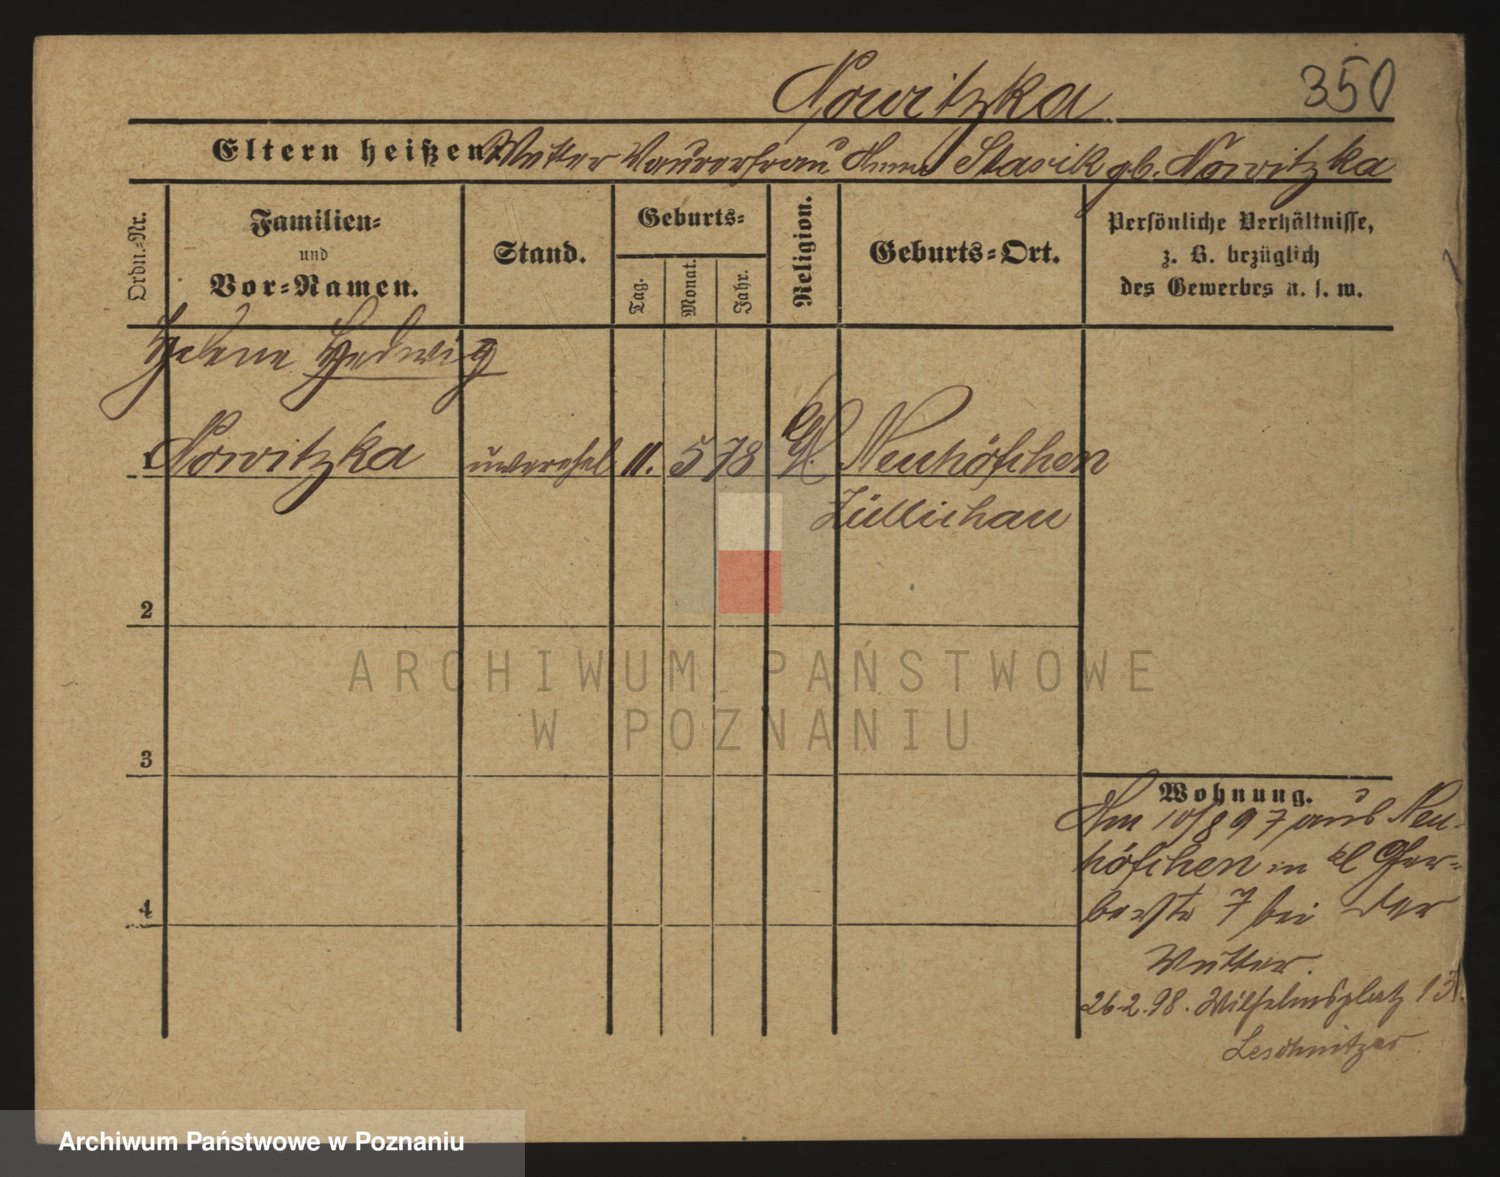 Nowitzka 350
Eltern heißen: Mutter Maurerfrau Anna Stasik gb. Nowitzka
Ordn.-Nr.
Familien-
und
Vor-Namen.
Stand.
Geburts-
Tag.
Monat.
Jahr.
Religion.
Geburts-Ort.
Persönliche Verhältnisse,
z. B. bezüglich
des Gewerbes u. s. w.
Helene Hedwig
1 Nowitzka unverehel 11. 5 78 Neuhöfchen
Züllichau
2
ARCHIWUM PAŃSTWOWE
W POZNANIU
3
Wohnung.
Am 10/8 97 aus Neu-
höfchen in kl Ger-
berstr 7 bei der
Mutter.
4
26.2.98. Wilhelmsplatz
Leschnitzer
Archiwum Państwowe w Poznaniu